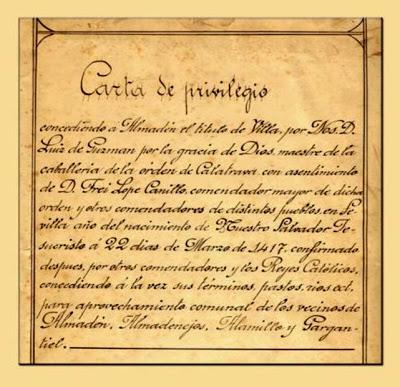 Carta de privilegio
concediendo a Almadén el titulo de Villa, por Nos. D.
Luiz de Guzman por la gracia de Dios, maestre de la
caballeria de la órden de Calatrava con asentimiento
de D. Frei Lope Carillo, comendador mayor de dicha
orden y otros comendadores de distintos pueblos, en Se-
villa año del nacimiento de Nuestro Salvador Je-
sucristo á 22 dias de Marzo de 1417, confirmado
despues, por otros comendadores y los Reyes Católicos,
concediendo á la vez sus términos, pastos, rios ect.
para aprovechamiento comunal de los vecinos de
Almadén, Almadenejos, Alamillo y Gargan-
tiel.